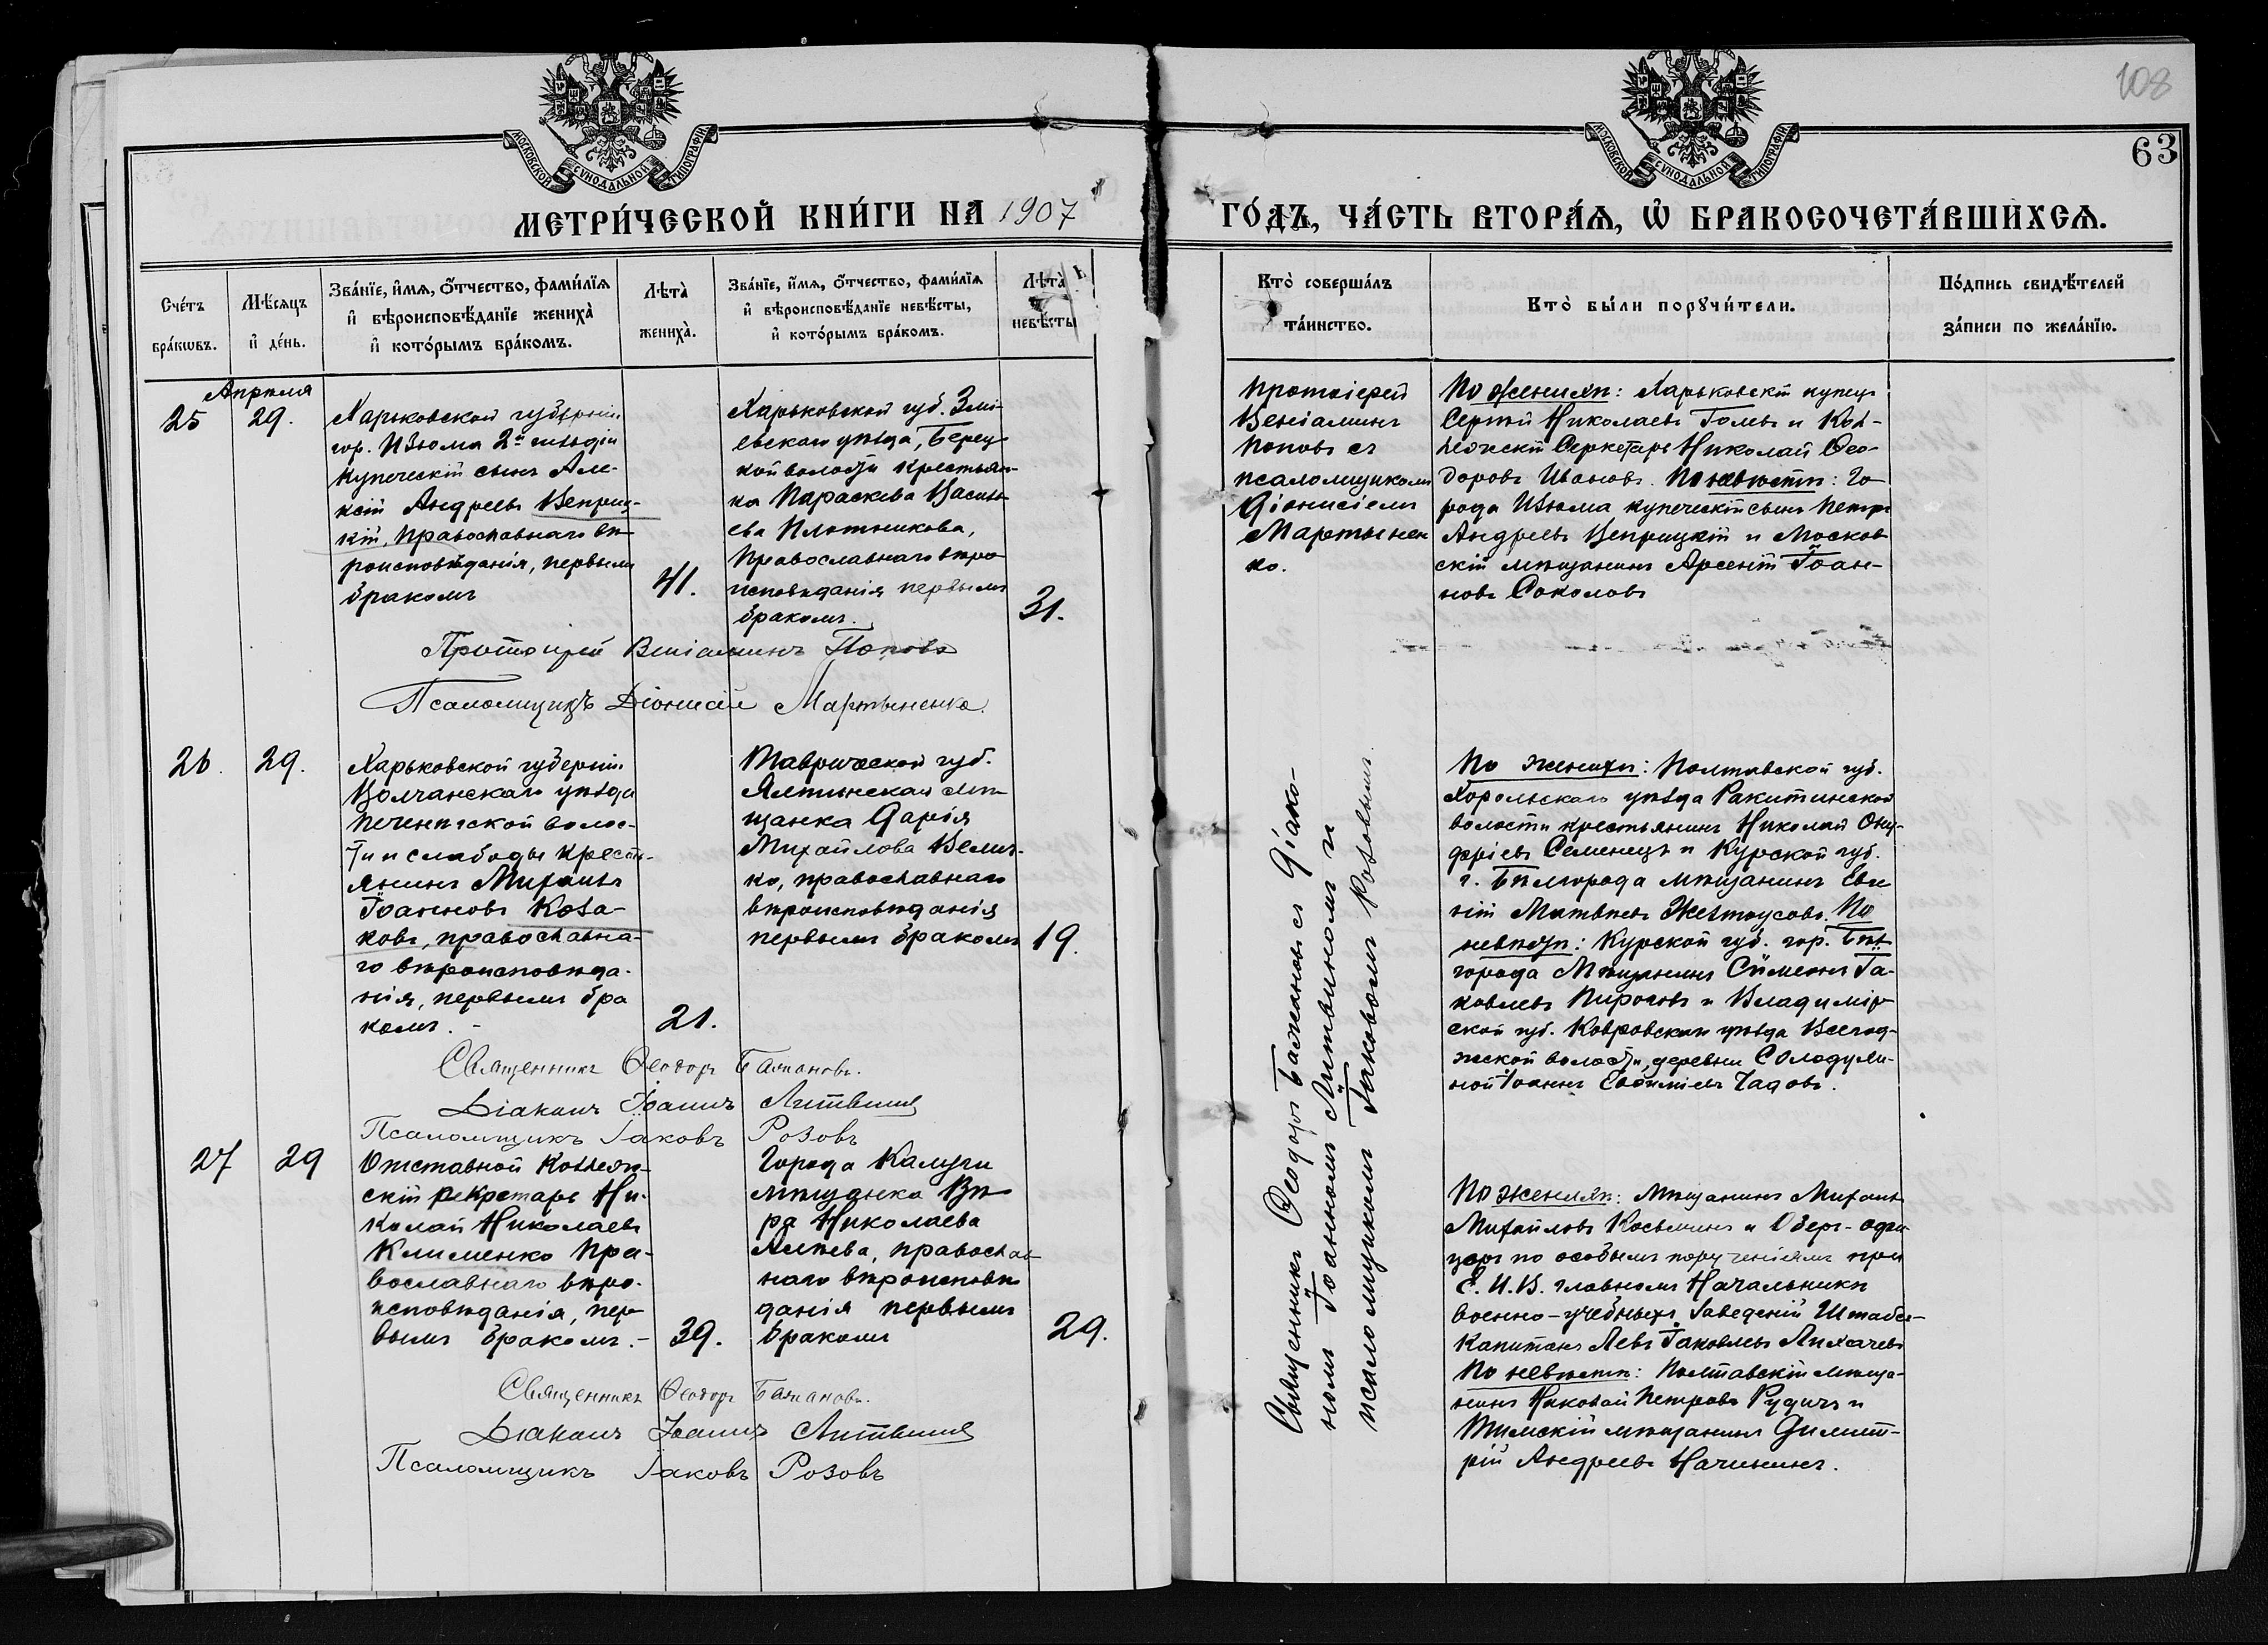 108
63
МОСКОВСКОЙ СѴНОДАЛЬНОЙ ТИПОГРАФІИ
МОСКОВСКОЙ СѴНОДАЛЬНОЙ ТИПОГРАФІИ
МЕТРИ́ЧЕСКОЙ КНИ́ГИ НА 1907
ГО́ДЪ, ЧА́СТЬ ВТОРА́Я, Ѡ҆ БРАКОСОЧЕТА́ВШИХСЯ.
Сче́тъ
бра́кѡвъ.
Мѣ́сяцъ
и҆ де́нь.
Зва́нїе, и҆́мя, о҆́тчество, фами́лїя
и҆ вѣроисповѣ́данїе жениха̀
и҆ кото́рымъ бра́комъ.
Лѣта̀
жениха̀.
Зва́нїе, и҆́мя, о҆́тчество, фами́лїя
и҆ вѣроисповѣ́данїе невѣ́сты,
и҆ кото́рымъ бра́комъ.
Лѣта̀
невѣ́сты
Кто̀ соверша́лъ
та́инство.
Кто̀ бы́ли порꙋчи́тели.
По́дпись свидѣ́телей
за́писи по жела́нїю.
Апрѣля
25
29.
Харьковской губерніи
гор. Изюма 2й гильдіи
купеческій сынъ Але-
ксѣй Андреевъ Веприц-
кій, православнаго вѣ-
роисповѣданія, первымъ
бракомъ
41.
Харьковской губ. Змі-
евскаго уѣзда, Берец-
кой волости крестьян-
ка Параскева Василь-
ева Плотникова,
Православнаго вѣро
исповѣданія первымъ
бракомъ.
31.
Протоіерей
Веніаминъ
Поповъ съ
псаломщикомъ
Діонисіемъ
Мартынен
ко.
По женихѣ: Харьковскій купецъ
Сергѣй Николаевъ Голевъ и Кол-
лежскій Секретарь Николай Ѳео-
доровъ Ивановъ. По невѣстѣ: Го
рода Изюма купеческій сынъ Петръ
Андреевъ Веприцкій и Москов
скій мѣщанинъ Арсеній Іоан-
новъ Соколовъ
Протоіерей Веніаминъ Поповъ
Псаломщикъ Діонисій Мартыненко.
26.
29.
Харьковской губерніи
Волчанскаго уѣзда
Печенѣжской волос-
ти и слободы крестъ-
янинъ Михаилъ
Іоанновъ Коза-
ковъ, православна-
го вѣроисповѣда-
нія, первымъ бра
комъ. -
21.
Таврической губ.
Ялтинская мѣ
щанка Дарія
Михайлова Велич-
ко, православнаго
вѣроисповѣданія
первымъ бракомъ
19.
Священникъ Ѳеодоръ Бажановъ съ Діако-
номъ Іоанномъ Литвиномъ и
псаломщикомъ Іаковомъ Розовымъ.
По женихѣ: Полтавской губ.
Хорольскаго уѣзда Ракитинской
волости крестьянинъ Николай Ону-
фріевъ Семенецъ и Курской губ.
г. Бѣлгорода мѣщанинъ Евге
ній Матвѣевъ Желтоусовъ. По
невѣстѣ: Курской губ. гор. Бѣл
города Мѣщанинъ Сімеонъ Іа-
ковлевъ Пироговъ и Владимір
ской губ. Ковровскаго уѣзда Всегод-
жской волости, деревни Солодухи-
ной Іоаннъ Евѳиміевъ Чадовъ.
Священникъ Ѳеодоръ Бажановъ.
Діаконъ Іоаннъ Литвинъ
Псаломщикъ Іаковъ Розовъ
27
29
Отставной Коллеж-
скій секретарь Ни-
колай Николаевъ
Клименко Пра-
вославнаго вѣро-
исповѣданія, пер-
вымъ бракомъ. -
39.
Города Калуги
мѣщанка Вѣ
ра Николаева
Алѣева, православ
наго вѣроисповѣ
данія первымъ
бракомъ
29.
По женихѣ: Мѣщанинъ Михаилъ
Михайловъ Косьминъ и Оберъ-офи
церъ по особымъ порученіямъ при
Е. И. В. главномъ Начальникѣ
военно-учебныхъ заведеній Штабсъ-
Капитанъ Левъ Іаковлевъ Лихачевъ
По невѣстѣ: Полтавскій мѣща-
нинъ Николай Петровъ Рудичъ и
Тимскій мѣщанинъ Димит-
рій Андреевъ Начинкинъ.
Священникъ Ѳеодоръ Бажановъ.
Діаконъ Іоаннъ Литвинъ
Псаломщикъ Іаковъ Розовъ